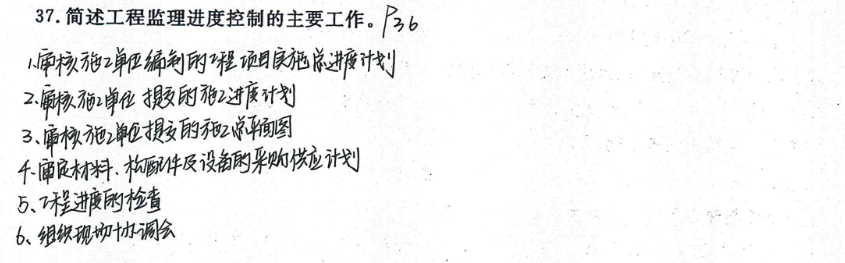 37.简述工程监理进度控制的主要工作。P36
1、审核施工单位编制的工程项目实施总进度计划
2、审核施工单位提交的施工进度计划
3、审核施工单位提交的施工总平面图
4、审定材料、构配件及设备的采购供应计划
5、工程进度的检查
6、组织现场协调会